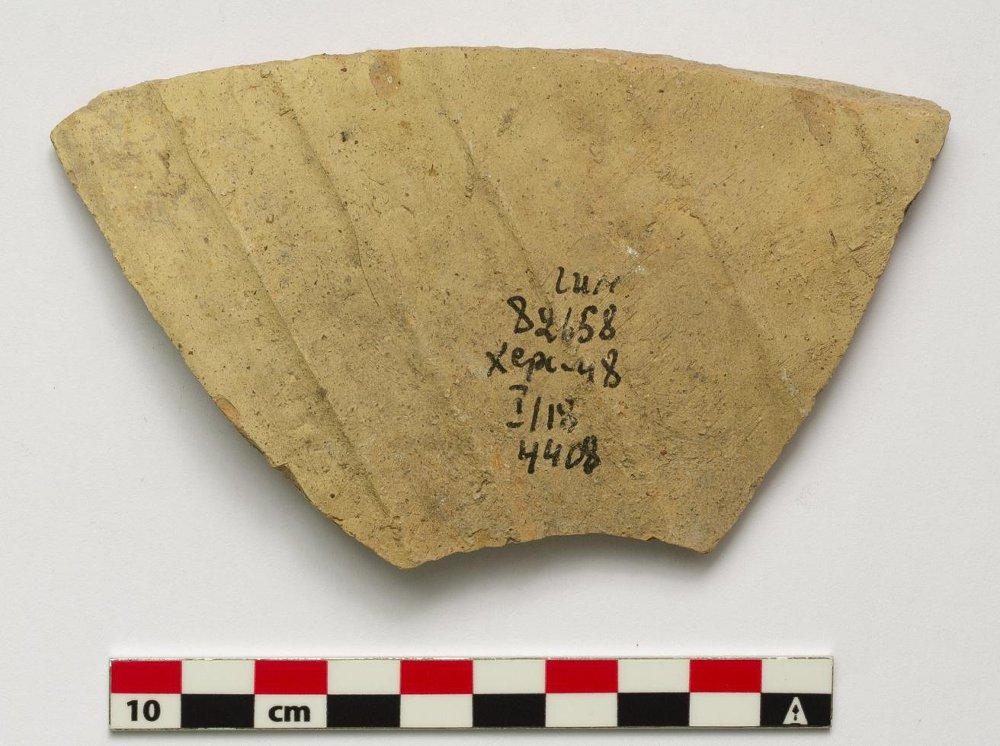 ГИМ
82658
Херс-48
I/18
4408
10 cm